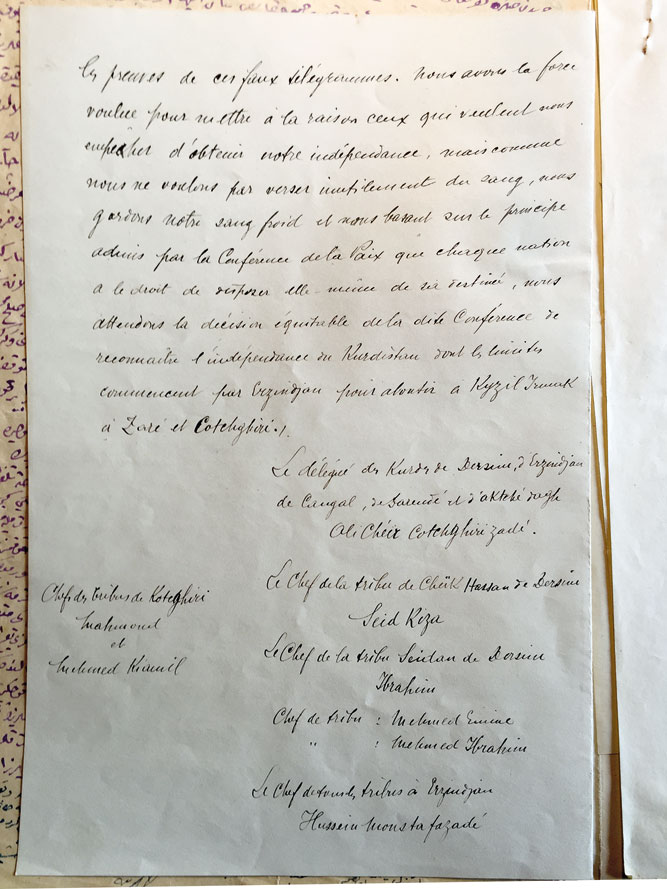 les preuves de ces faux télégrammes. Nous avons la force
voulue pour mettre à la raison ceux qui veulent nous
empêcher d'obtenir notre indépendance, mais comme
nous ne voulons pas verser inutilement du sang, nous
gardons notre sang froid et nous basant sur le principe
admis par la Conférence de la Paix que chaque nation
a le droit de disposer elle-même de sa destinée, nous
attendons la décision équitable de la dite Conférence de
reconnaître l'indépendance du Kurdistan dont les limites
commencent par Erzindjan pour aboutir à Kyzil Irmak
à Zaré et Cotchghiri./.
Le délégué des Kurdes de Dersim, d'Erzindjan
de Cangal, de et d'Aktché dagh
Ali Chéir Cotchghiri zadé.
Le Chef de la tribu de Cheik Hassan de Dersim
Seid Riza
Chefs des tribus de Kotchghiri
Mahmoud
et
Mehmed Kiamil
Le Chef de la tribu de Dersim
Ibrahim
Chef de tribu : Mehmed Emine
" : Mehmed Ibrahim
Le Chef de tous les tribus à Erzindjan
Hussein Moustafazadé